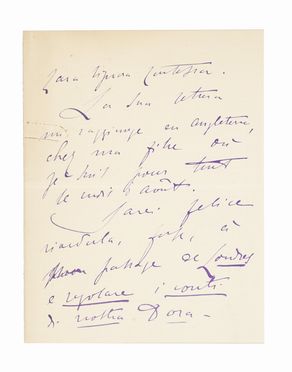 Cara Signora Contessa.
La sua lettera
mi raggiunge en angleterre,
chez ma fille où
je suis pour tout
le mois d'août.
Sarei felice
rivederla, à
passage de Londres
e regolare i conti
di nostra Dora -